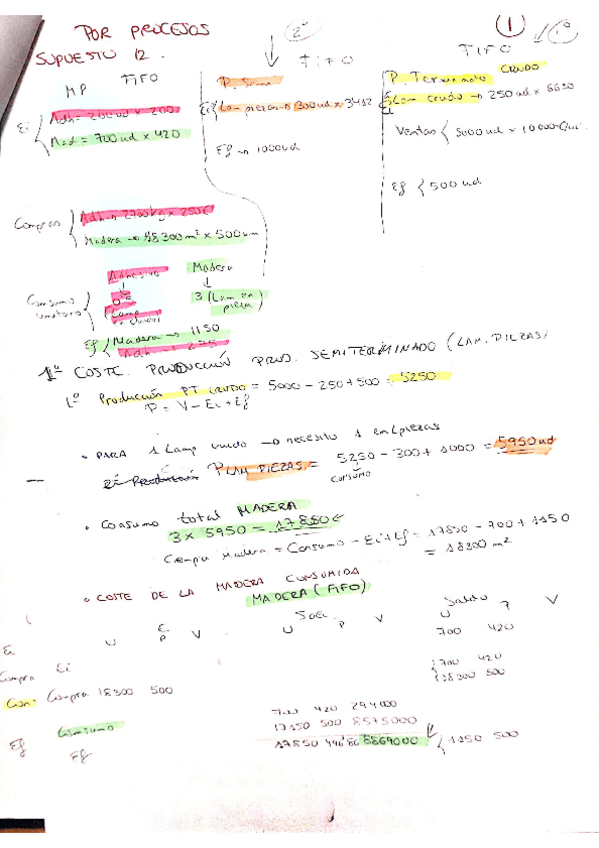 POR PROCESOS
SUPUESTO 12.
2º
1
1º
MP FIFO
FIFO
FIFO
P. Semi
P. Terminado CRUDO
Ei
Adh = 200 ud x 200
Mad = 700 ud x 420
Ei Lam piezas → 300 ud x 3452
Lam crudo → 250 ud x 6650
Ei
Ventas 5000 ud x 10000
Ef → 1000 ud
Ef 500 ud
Compras
Adh → 2700 kg x 250€
Madera → 18300 m² x 500 um
Consumo unitario
Adhesivo
Madera
0'5
3 (Lam en pieza)
Lamp
Ef Madera → 1150
Adh → 275
1º COSTE PRODUCCIÓN PROD. SEMITERMINADO (LAM. PIEZAS)
1º Producción PT CRUDO = 5000 - 250 + 500 = 5250
P = V - Ei + Ef
• PARA 1 Lamp crudo → necesito 1 en piezas
P LAM PIEZAS = 5250 - 300 + 1000 = 5950 ud
consumo
• Consumo total MADERA
3 x 5950 = 17850
Compra Madera = Consumo - Ei + Ef = 17850 - 700 + 1150
= 18300 m²
• COSTE DE LA MADERA CONSUMIDA
MADERA (FIFO)
E. Sali Saldo
U P V U P V U P V
Ei
700 420
Compra Ei
700 420
18300 500
Con. Compra 18300 500
700 420 294000
17150 500 8575000
Consumo
17850 496'86 8869000
1150 500
Ef Ef